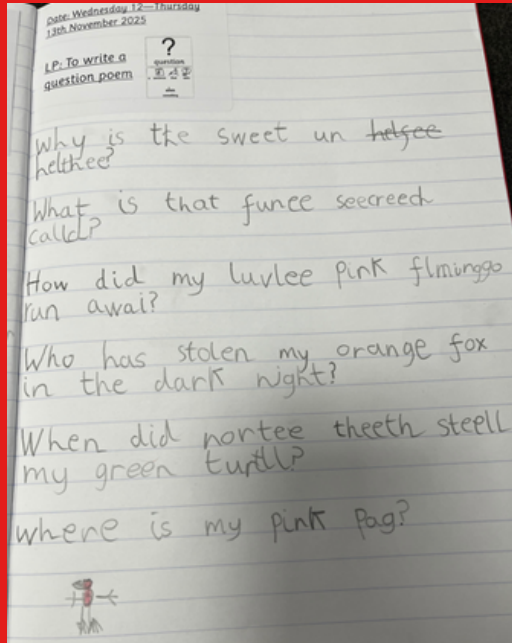 Date: Wednesday 12—Thursday
13th November 2025
LP: To write a
question poem
?
question
Why is the sweet un helfee
helthee?
What is that funee seecreech
calld?
How did my luvlee pink flminggo
run awai?
Who has stolen my orange fox
in the dark night?
When did nortee theeth steell
my green turtll?
where is my pink pag?